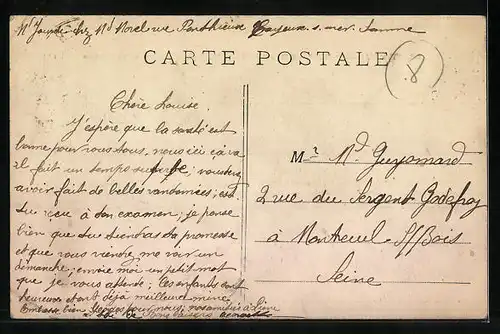 Md Jourde chez Md Morel rue Ponthieux Cayeux s. mer. Somme
CARTE POSTALE
8
Chère Louise.
J'espère que la santé est
bonne pour vous tous, nous ici ça va
il fait un temps superbe; vous
avoir fait de belles randonnées;
du reçu à son examen, je pense
bien que tu tiendras ta promesse
et que vous viendrez me voir un
dimanche, envoie moi un petit mot
que je vous attende; les enfants sont
heureux et ont déjà meilleure mine.
Embrasse bien
baisers
Mr Md Guyomard
2 rue du Sergent Godefroy
à Montreuil s/Bois
Seine